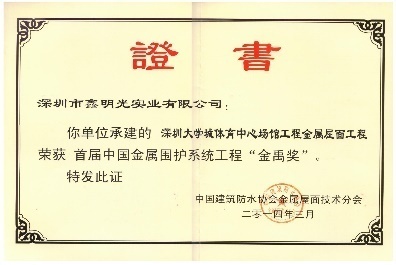 證書
深圳市鑫明光实业有限公司：
你单位承建的 深圳大学城体育中心场馆工程金属屋面工程
荣获 首届中国金属围护系统工程“金禹奖”。
特发此证
中国建筑防水协会金属屋面技术分会
二零一四年三月